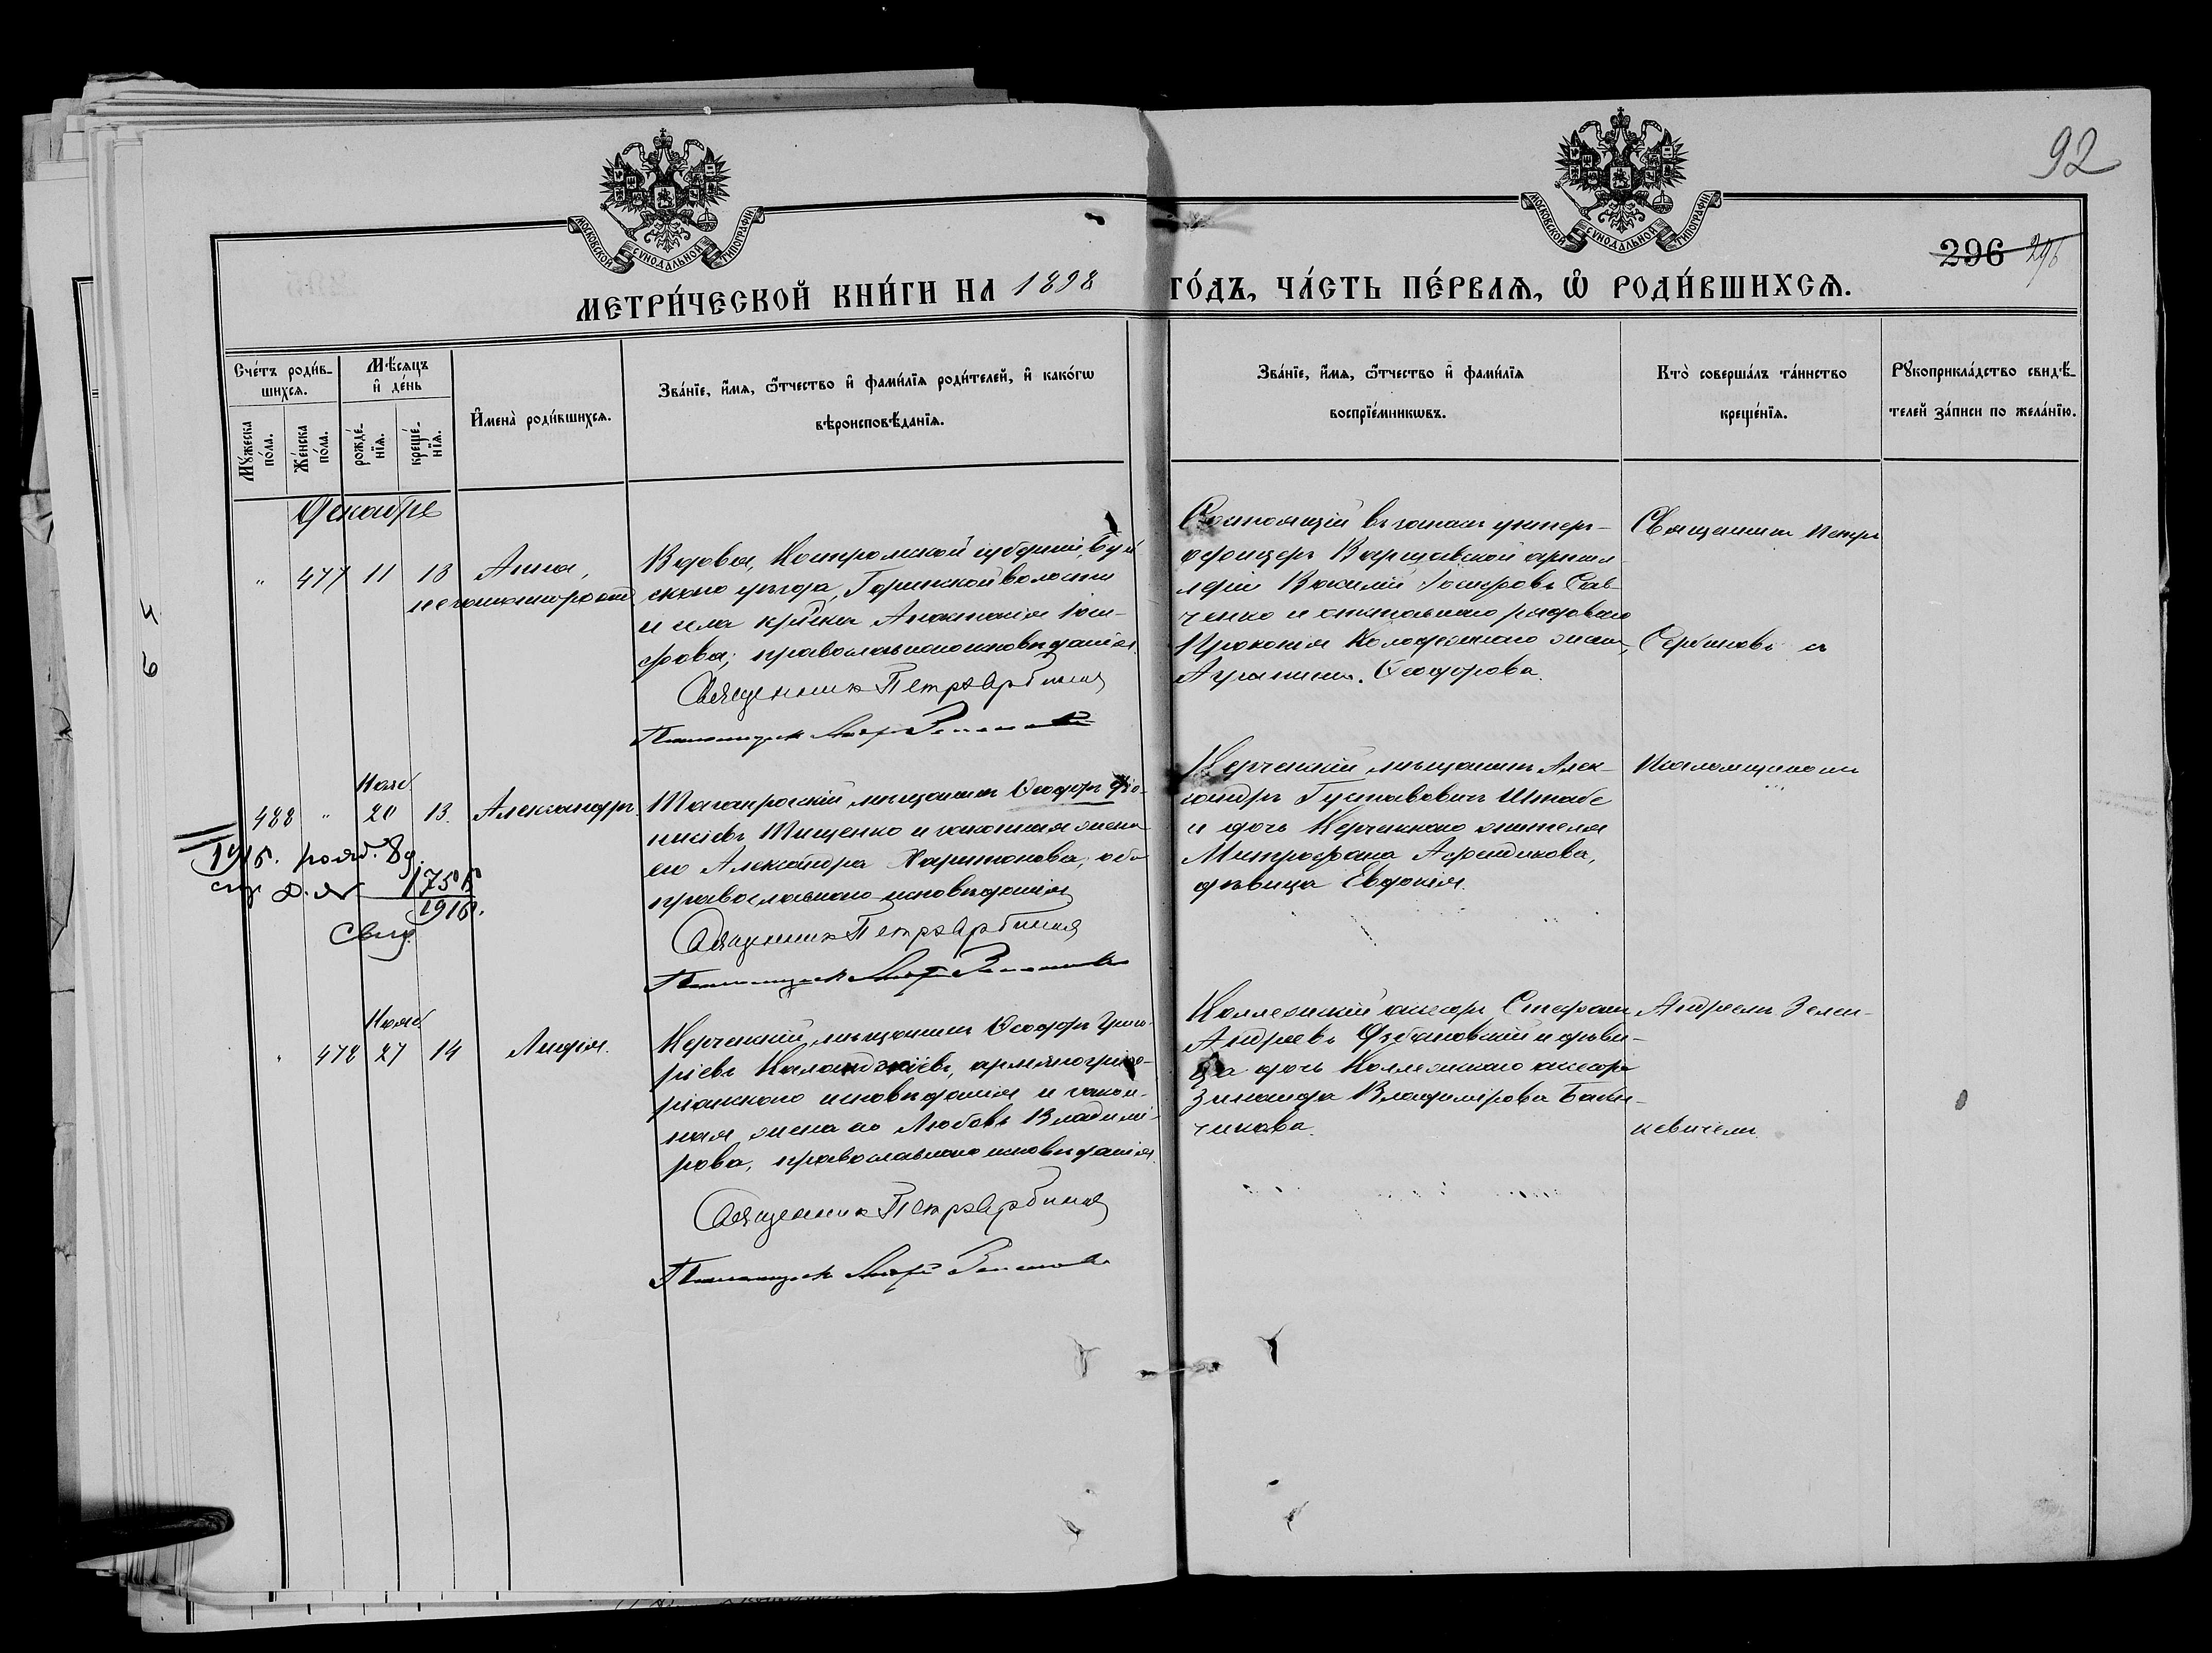 92
МОСКОВСКОЙ СУНОДАЛЬНОЙ ТИПОГРАФІИ
МОСКОВСКОЙ СУНОДАЛЬНОЙ ТИПОГРАФІИ
296 296
МЕТРИ́ЧЕСКОЙ КНИ́ГИ НА 1898 ГО́ДЪ, ЧА́СТЬ ПЕ́РВАѦ, Ѡ҆ РОДИ́ВШИХСѦ.
Сче́тъ роди́в-
шихсѧ.
Мꙋ́жеска по́ла.
Же́нска по́ла.
Мѣ́сѧцъ
и҆ де́нь
рожде́-
нїѧ.
креще́-
нїѧ.
И҆мена̀ роди́вшихсѧ.
Зва́нїе, и҆́мѧ, ѻ҆́тчество и҆ фами́лїѧ роди́телей, и҆ како́гѡ
вѣроисповѣ́данїѧ.
Зва́нїе, и҆́мѧ, ѻ҆́тчество и҆ фами́лїѧ
воспрїе́мникѡвъ.
Кто̀ соверша́лъ та́инство
креще́нїѧ.
Рꙋкоприкла́дство свидѣ́-
телей за́писи по жела́нїю.
Декабре
" 477 11 13 Анна,
незаконнорожд
Вдова, Костромской губерніи, Буй
скаго уѣзда, Горинской волости
и села Анастасія Іоси-
фова; православнаго исповѣданія.
Священникъ Петръ Сербиновъ
Псаломщикъ
Состоящій въ запасѣ унтеръ-
офицеръ Варшавской артил-
леріи Василій Іосифовъ Сав-
ченко и отставнаго рядоваго
Прокопія жена,
Агрипина Ѳеодорова.
Священникъ Петръ
Сербиновъ съ
Нояб
488 " 20 13. Александръ.
Таганрогскій мѣщанинъ Ѳеодоръ Діо-
нисіевъ Тищенко и законная жена
его Александра Харитонова, оба
православнаго исповѣданія
Священникъ Петръ Сербиновъ
Псаломщикъ
Керченскій мѣщанинъ Алек-
сандръ Густавовичъ Штабе
и дочь Керченскаго жителя
Митрофана Афендикова,
дѣвица Евдокія.
Псаломщикомъ
1915. 8д.
1756
1916.
Свид.
Нояб
" 478 27 14 Лидія.
Керченскій мѣщанинъ Ѳеодоръ Григо-
ріевъ Каланджіевъ, армяногриго-
ріанскаго исповѣданія и закон-
ная жена его Любовь Владими-
рова, православнаго исповѣданія.
Священникъ Петръ Сербиновъ
Псаломщикъ
Коллежскій ассесоръ Стефанъ
Андреевъ и дѣви-
ца дочь Коллежскаго ассесора
Зинаида Владимірова
Андреемъ Зелен-
кевичемъ.